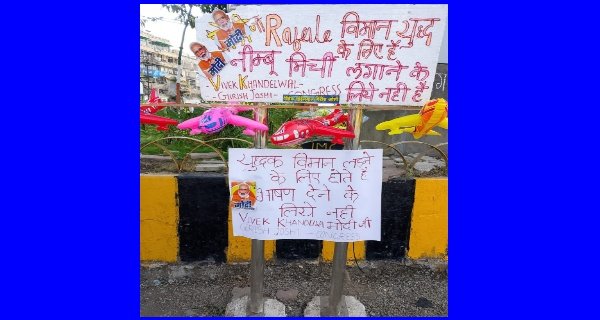 मोदी
मोदी
जी Rafale विमान युद्ध
के लिए है
नीम्बू मिर्ची लगाने के
VIVEK KHANDELWAL- लिये नही है
- GIRISH JOSHI - CONGRESS
युद्धक विमान लड़ने
के लिए होते है
मोदी
भाषण देने के
लिये नही
VIVEK KHANDELWAL मोदी जी
GIRISH JOSHI - CONGRESS